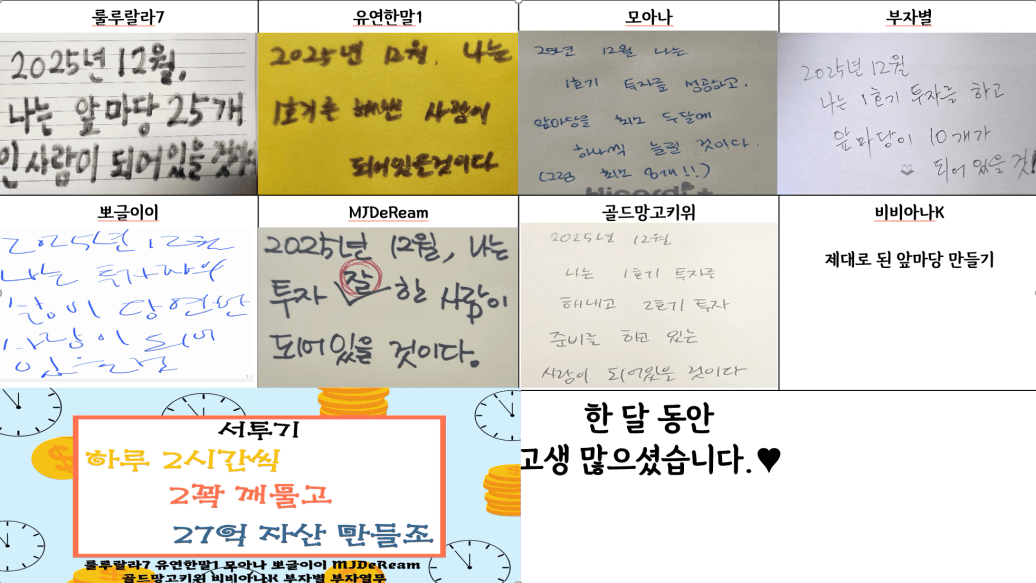 룰루랄라7
2025년 12월,
나는 앞마당 25개
인 사람이 되어있을 것이
유연한말1
2025년 12월, 나는
1호기를 해낸 사람이
되어있을것이다
모아나
25년 12월 나는
1호기 투자를 성공하고,
앞마당을 최소 두달에
하나씩 늘릴 것이다.
(그럼 최소 8개!!)
부자별
2025년 12월
나는 1호기 투자를 하고
앞마당이 10개가
되어 있을 것!
뽀글이이
2025년 12월
나는 투자자의
삶이 당연한
사람이 되어
있을
MJDeReam
2025년 12월, 나는
투자 잘 한 사람이
되어있을 것이다.
골드망고키위
2025년 12월
나는 1호기 투자를
해내고 2호기 투자
준비를 하고 있는
사람이 되어있을 것이다
비비아나K
제대로 된 앞마당 만들기
서투기
하루 2시간씩
2꽉 깨물고
27억 자산 만들조
룰루랄라7 유연한말1 모아나 뽀글이이 MJDeReam
골드망고키위 비비아나K 부자별 부자열무
한 달 동안
고생 많으셨습니다.♥